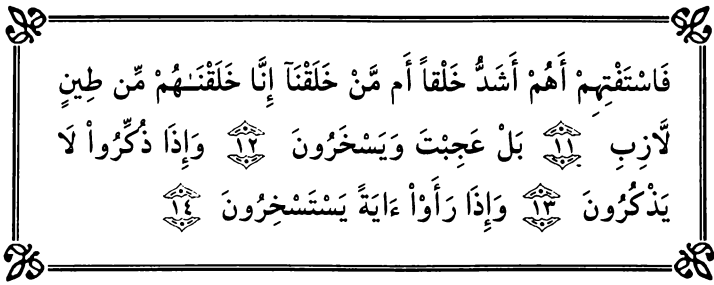 فَاسْتَفْتِهِمْ أَهُمْ أَشَدُّ خَلْقاً أَم مَّنْ خَلَقْنَآ إِنَّا خَلَقْنَـٰهُمْ مِّن طِينٍ
لَّازِبٍ ١١ بَلْ عَجِبْتَ وَيَسْخَرُونَ ١٢ وَإِذَا ذُكِّرُواْ لَا
يَذْكُرُونَ ١٣ وَإِذَا رَأَوْاْ ءَايَةً يَسْتَسْخِرُونَ ١٤